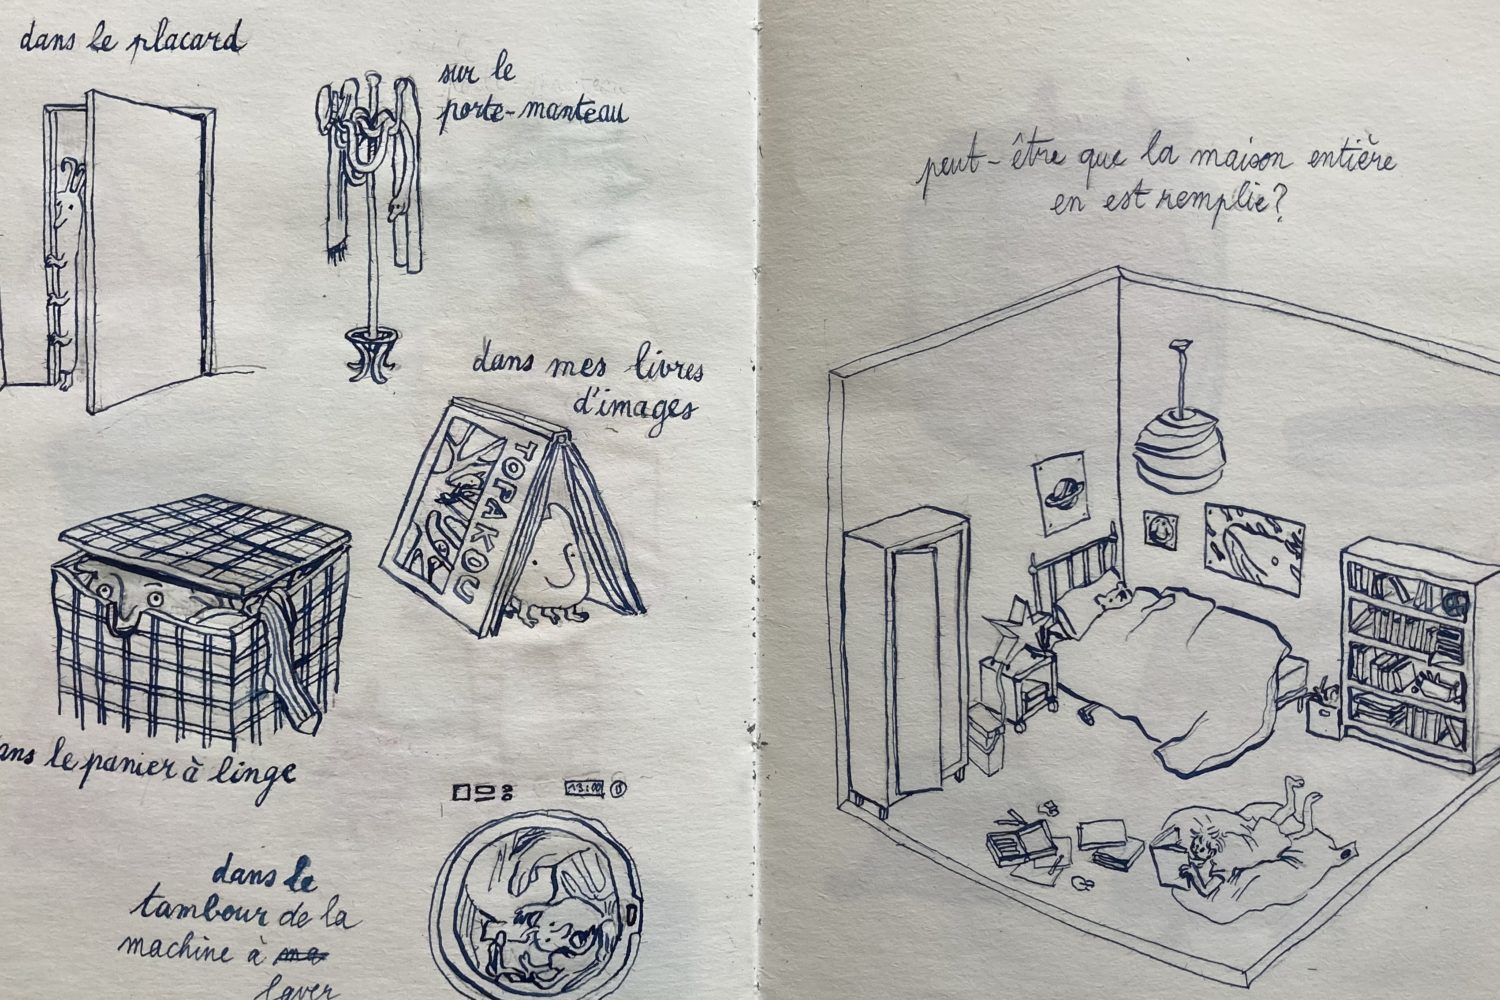 dans le placard
sur le
porte-manteau
dans mes livres
d'images
TOPAKOU
ans le panier à linge
13:00
dans le
tambour de la
machine à ma
laver
peut-être que la maison entière
en est remplie?